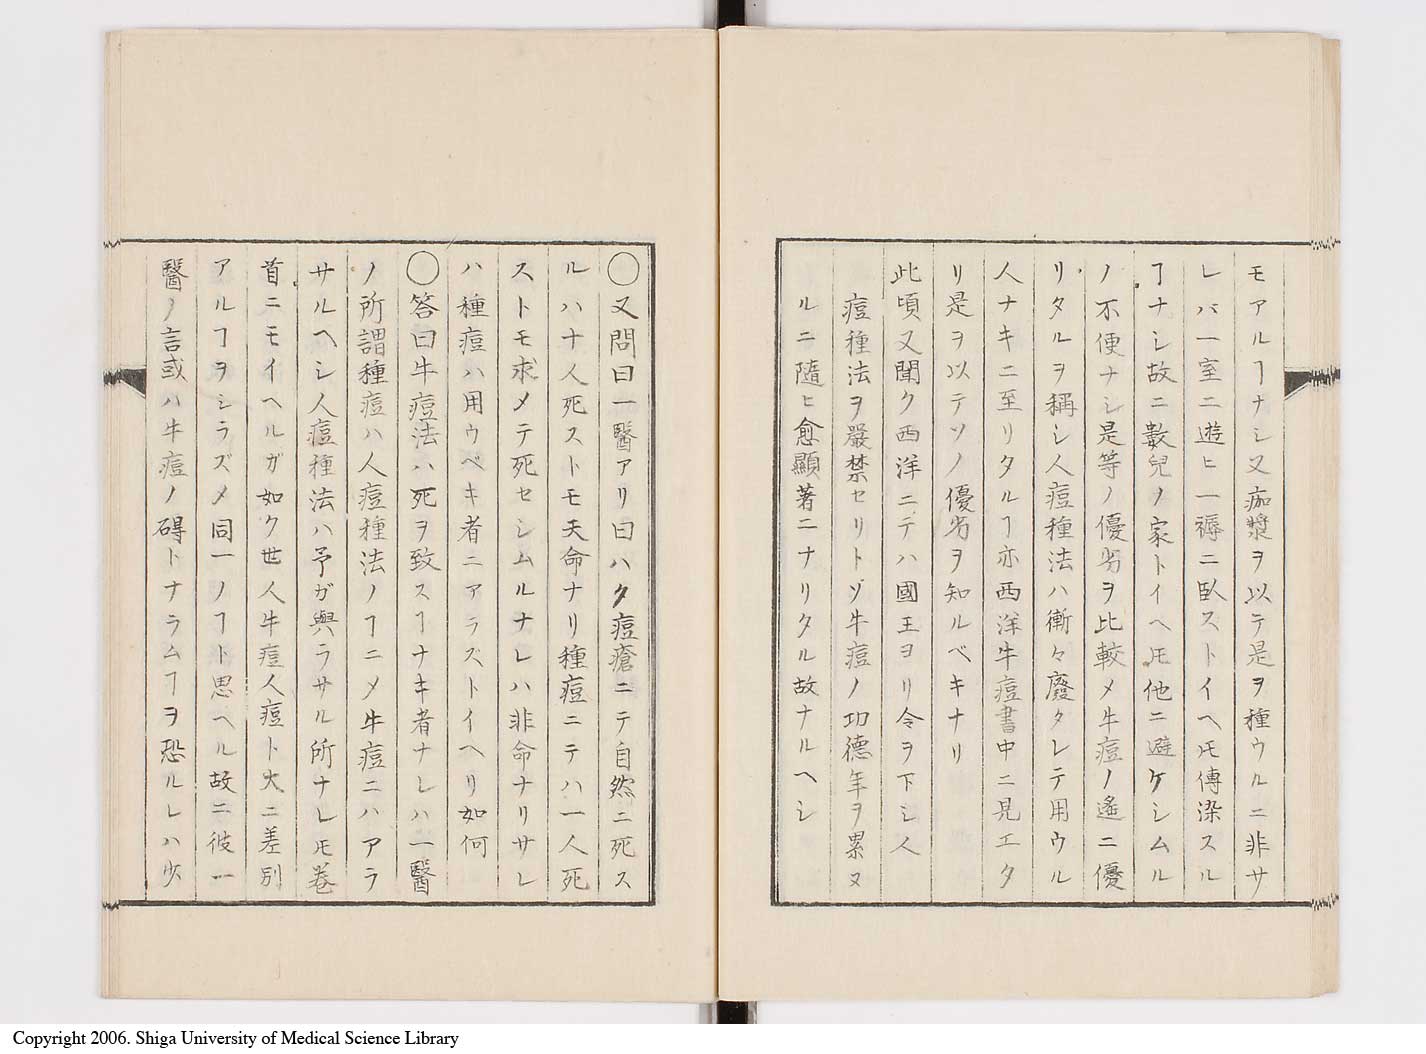 モアルヿナシ又痂漿ヲ以テ是ヲ種ウルニ非サ
レバ一室ニ遊ヒ一褥ニ臥ストイヘ𪜈傳染スル
ヿナシ故ニ數兒ノ家トイヘ𪜈他ニ避ケシムル
ノ不便ナシ是等ノ優劣ヲ比較メ牛痘ノ遙ニ優
リタルヲ稱シ人痘種法ハ衝々廢タレテ用ウル
人ナキニ至リタルヿ亦西洋牛痘書中ニ見エタ
リ是ヲ以テソノ優劣ヲ知ルベキナリ
此頃又聞ク西洋ニテハ國王ヨリ令ヲ下シ人
痘種法ヲ嚴禁セリトゾ牛痘ノ功德年ヲ累ヌ
ルニ隨ヒ愈顯著ニナリタル故ナルヘシ
〇又問曰一醫アリ曰ハク痘瘡ニテ自然ニ死ス
ルハナ人死ストモ天命ナリ種痘ニテハ一人死
ストモ求メテ死セシムルナレハ非命ナリサレ
ハ種痘ハ用ウベキ者ニアラズトイヘリ如何
〇答曰牛痘法ハ死ヲ致スヿナキ者ナレハ一醫
ノ所謂種痘ハ人痘種法ノヿニメ牛痘ニハアラ
サルヘシ人痘種法ハ予ガ與ハラサル所ナレ𪜈巻
首ニモイヘルガ如ク世人牛痘人痘ト大ニ差別
アルヿヲシラズメ同一ノヿト思ヘル故ニ彼一
醫ノ言或ハ牛痘ノ碍トナラムヿヲ恐ルレハ少
Copyright 2006. Shiga University of Medical Science Library